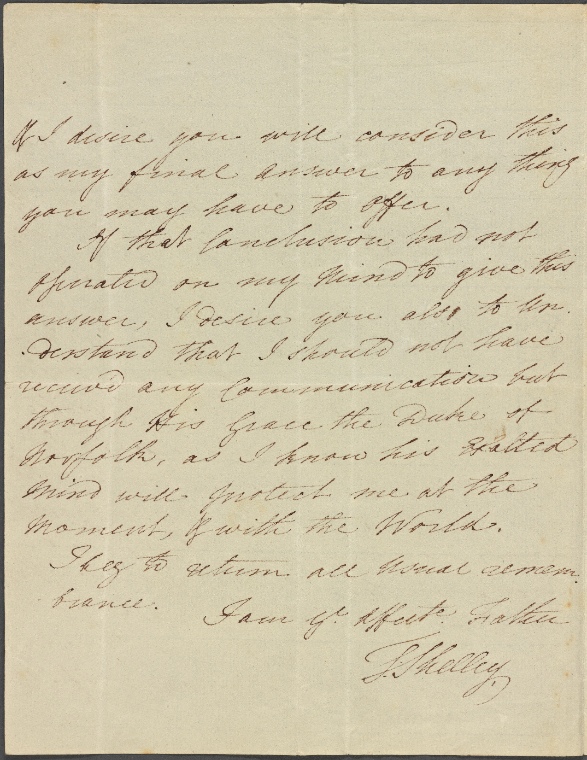 & I desire you will consider this
as my final answer to any thing
you may have to offer.
If that Conclusion had not
operated on my Mind to give this
answer, I desire you also to Un-
derstand that I should not have
receivd any Communication but
through His Grace the Duke of
Norfolk, as I know his exalted
Mind will protect me at the
Moment, & with the World.
I beg to return all usual remem
brance.
I am yr. Affecte. Father
T. Shelley.